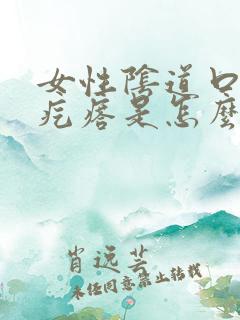 女性陰道口
疙瘩是怎麼
肖远芸
未经同意禁止转载